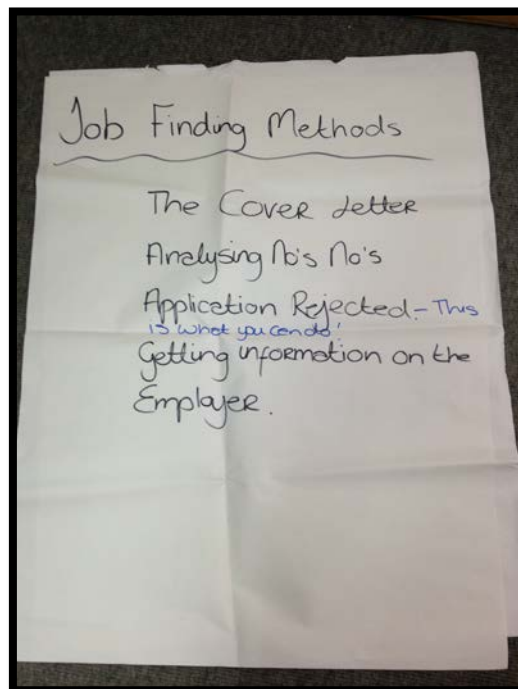 Job Finding Methods
The Cover Letter
Analysing No's No's
Application Rejected - This
is what you can do!
Getting information on the
Employer.